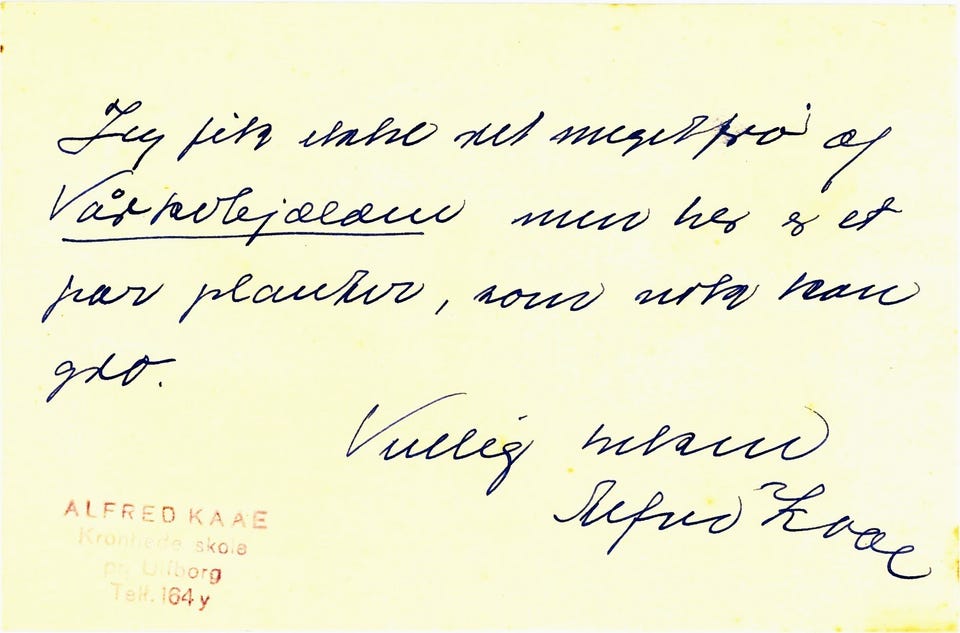 Jeg fik ikke ret meget frø af
Vårkobjælden men her er et
par planter, som nok kan
gro.
Venlig hilsen
Alfred Kaae
ALFRED KAAE
Kronhede skole
pr. Ulfborg
Telf. 164 y